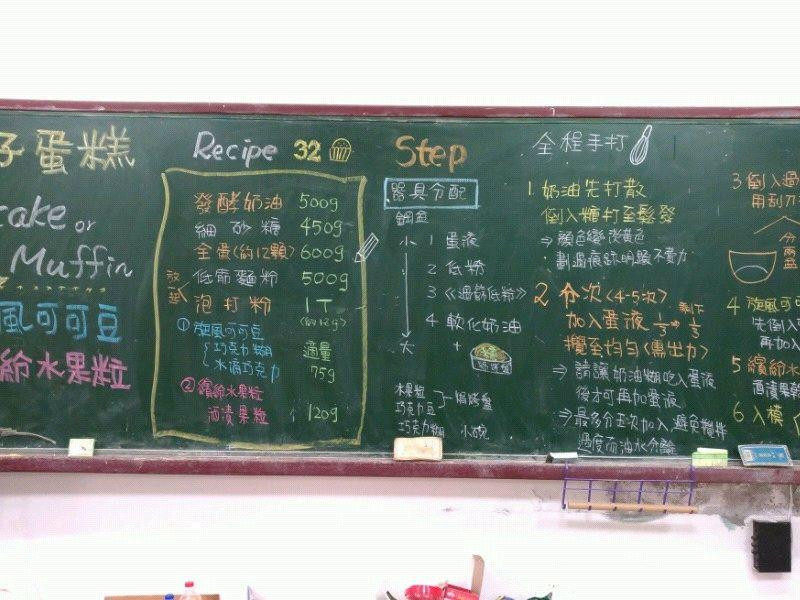 子蛋糕
cake or
Muffin
風可可豆
紛水果粒
Recipe 32
發酵奶油 500g
細砂糖 450g
全蛋(約12顆) 600g
低筋麵粉 500g
泡打粉 1T
(約12g)
①旋風可可豆
巧克力糊 適量
水滴巧克力 75g
②繽紛水果粒
酒漬果粒 120g
Step
器具分配
鋼盆
小 1 蛋液
2 低粉
3 《過篩低粉》
4 軟化奶油
大 +
水果粒
巧克力豆
巧克力糊 小碗
全程手打
1. 奶油先打散
倒入糖打至鬆發
⇒ 顏色變淡黃色
劃過痕跡明顯不費力
2 分次(4-5次) 剩下
加入蛋液 1/3 → 1/3
攪至均勻(需出力)
⇒ 請讓奶油糊吃入蛋液
後才可再加蛋液
⇒ 最多分五次加入 避免攪拌
過度而油水分離
3 倒入過
用刮刀
分兩盆
4 旋風可
先倒入
再加入
5 繽紛水
酒漬果乾
6 入模